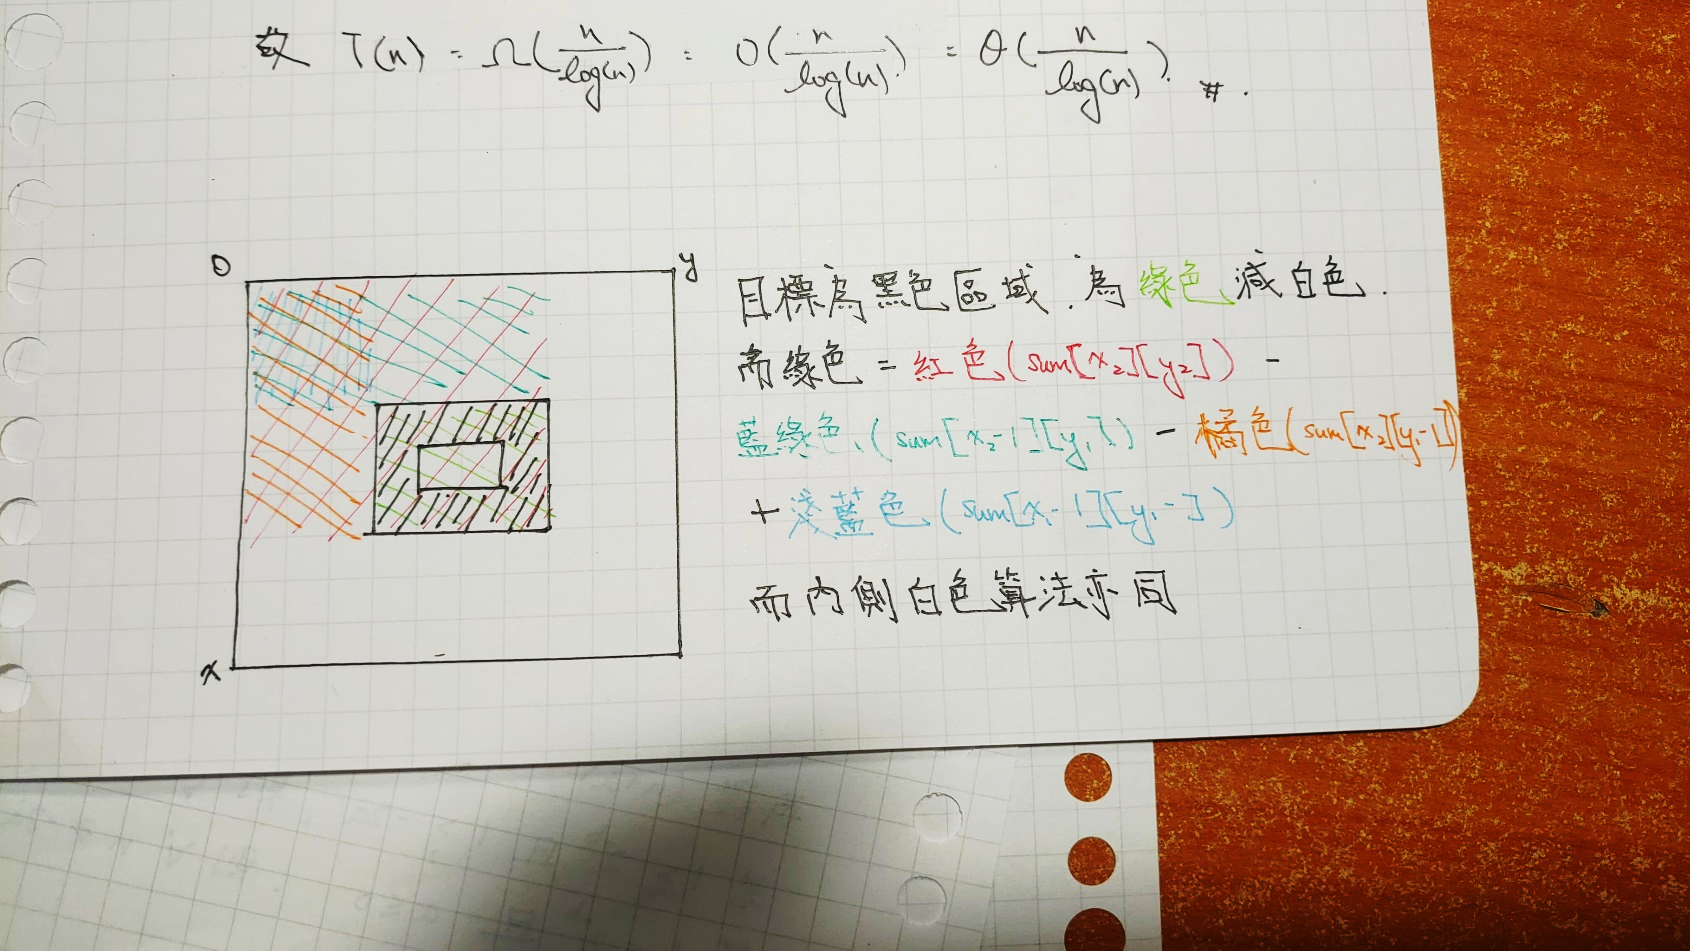 故 T(n) = Ω(n/log(n)) = O(n/log(n)) = θ(n/log(n)). #.
0
y
x
目標為黑色區域.為綠色減白色.
而綠色 = 紅色(sum[x₂][y₂]) -
藍綠色(sum[x₂-1][y₁]) - 橘色(sum[x₂][y₁-1])
+ 淺藍色(sum[x₁-1][y₁-])
而內側白色算法亦同